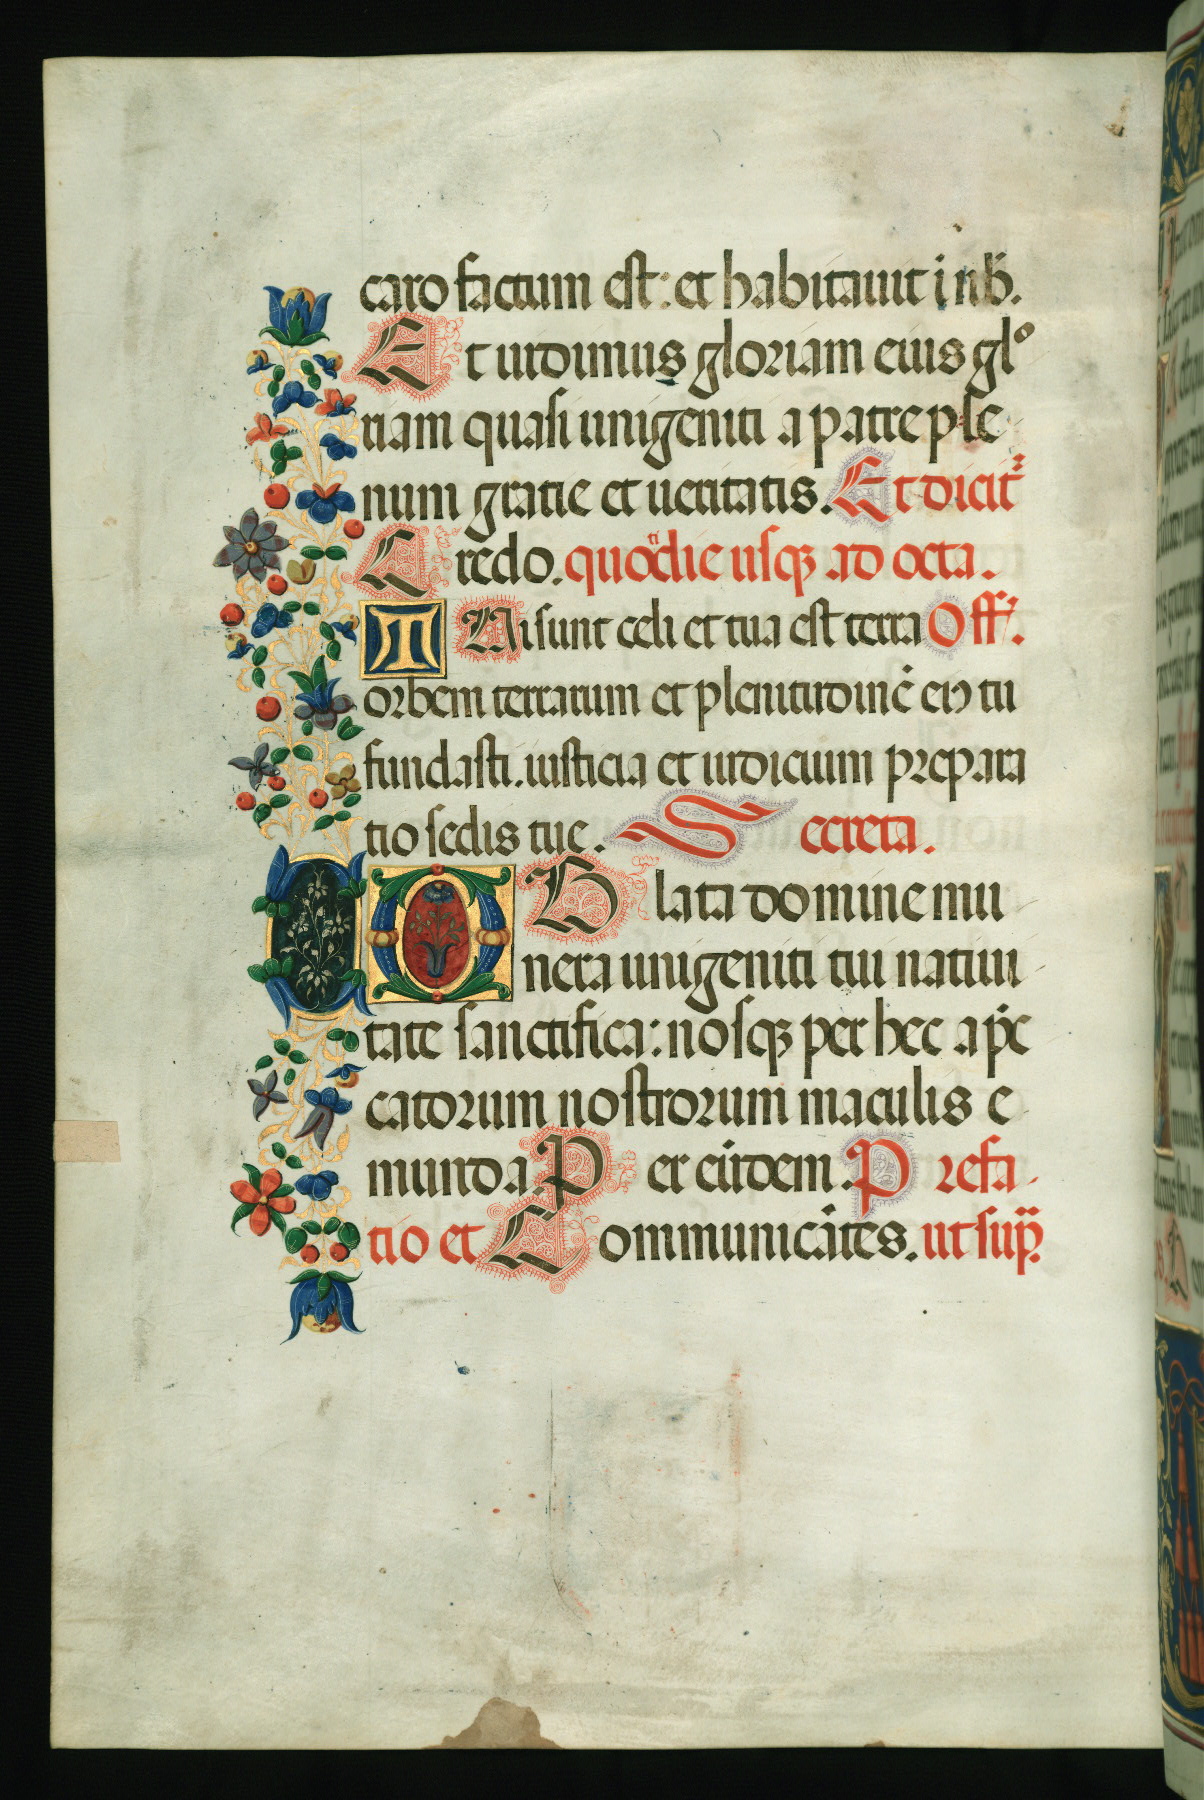 caro factum est: et habitauit i nob̃.
Et uidimus gloriam eius glo
riam quasi unigeniti a patre ple
num gratie et ueritatis. Et dicit̃
Credo. quotidie usq; ad octa.
TUi sunt celi et tua est terra Off̃.
orbem terrarum et plenitudinẽ eius tu
fundasti. iusticia et iudicium prepara
tio sedis tue. Secreta.
OBlata domine mu
nera unigeniti tui natiui
tate sanctifica: nosq; per hec a p̃c
catorum nostrorum maculis e
munda. Per eũdem. Prefa
tio et Communicãtes. ut sup̃.